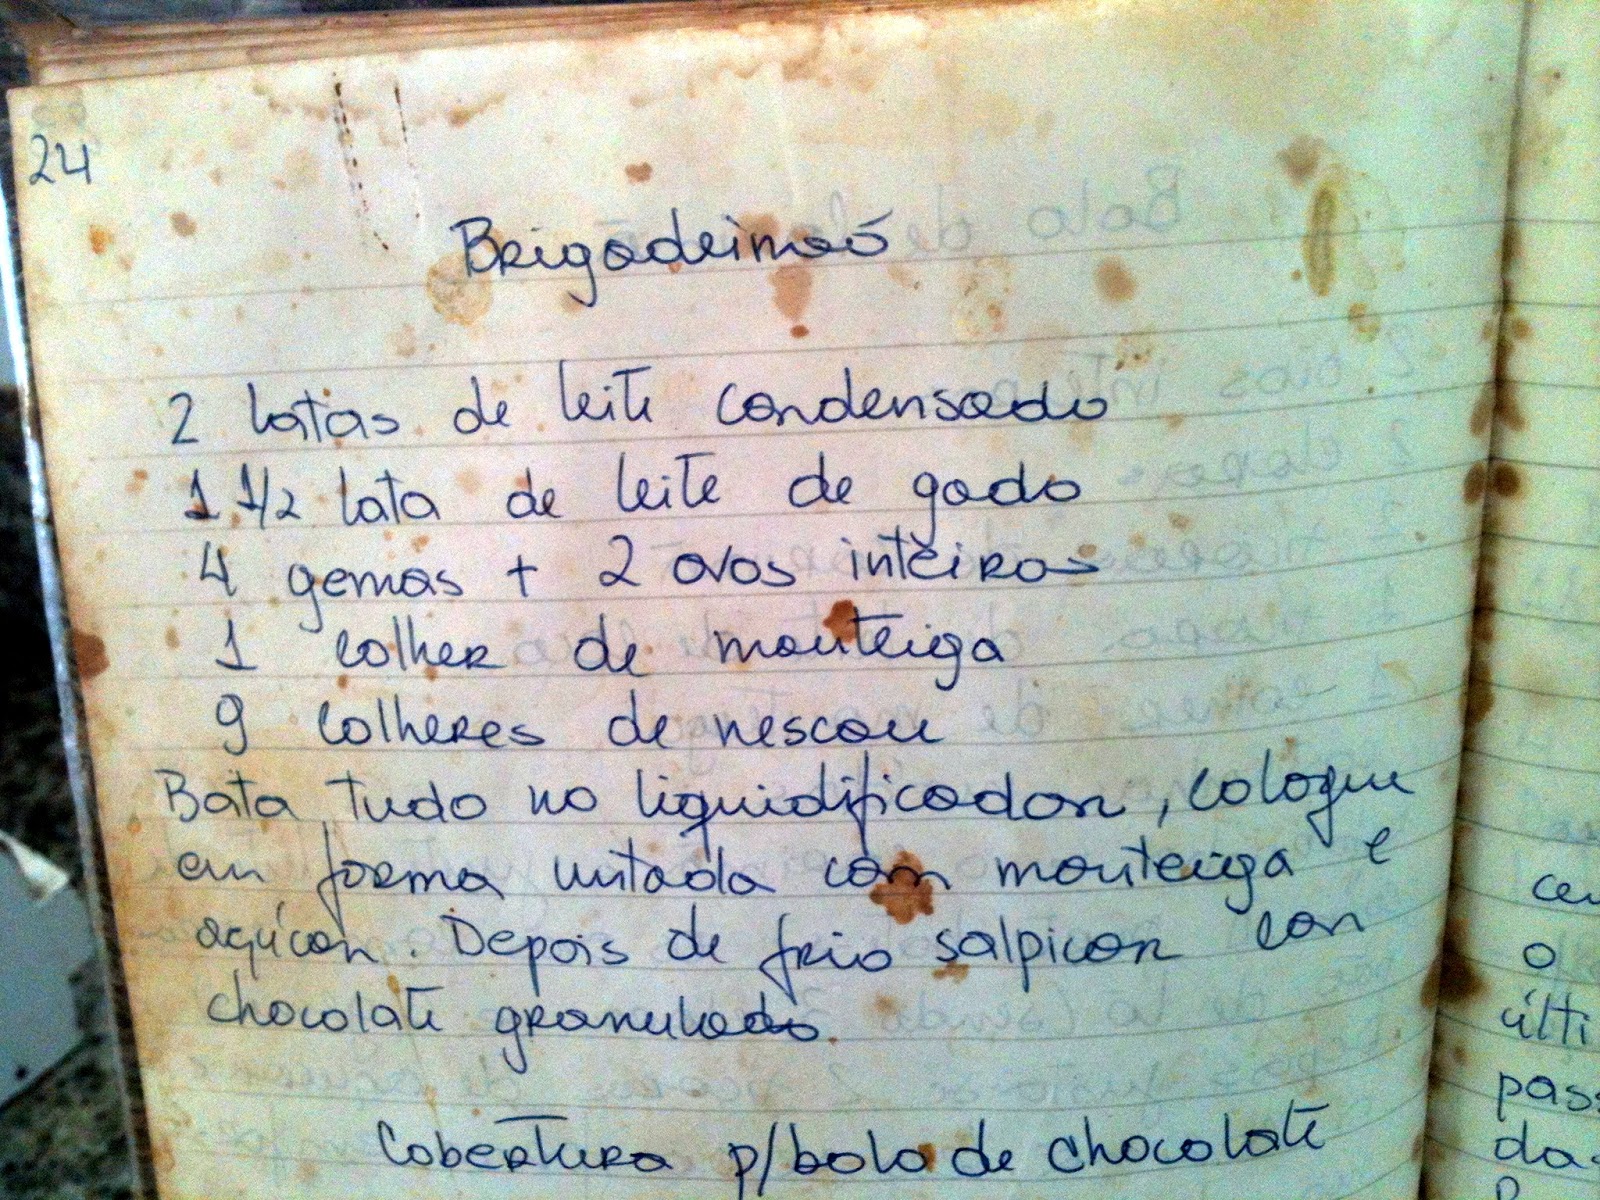 24
Brigadeirão
2 latas de leite condensado
1 1/2 lata de leite de gado
4 gemas + 2 ovos inteiros
1 colher de manteiga
9 colheres de nescau
Bata tudo no liquidificador, coloque
em forma untada com manteiga e
açúcar. Depois de frio salpicar com
chocolate granulado.
Cobertura p/bolo de chocolate
o
últi
pass
da-